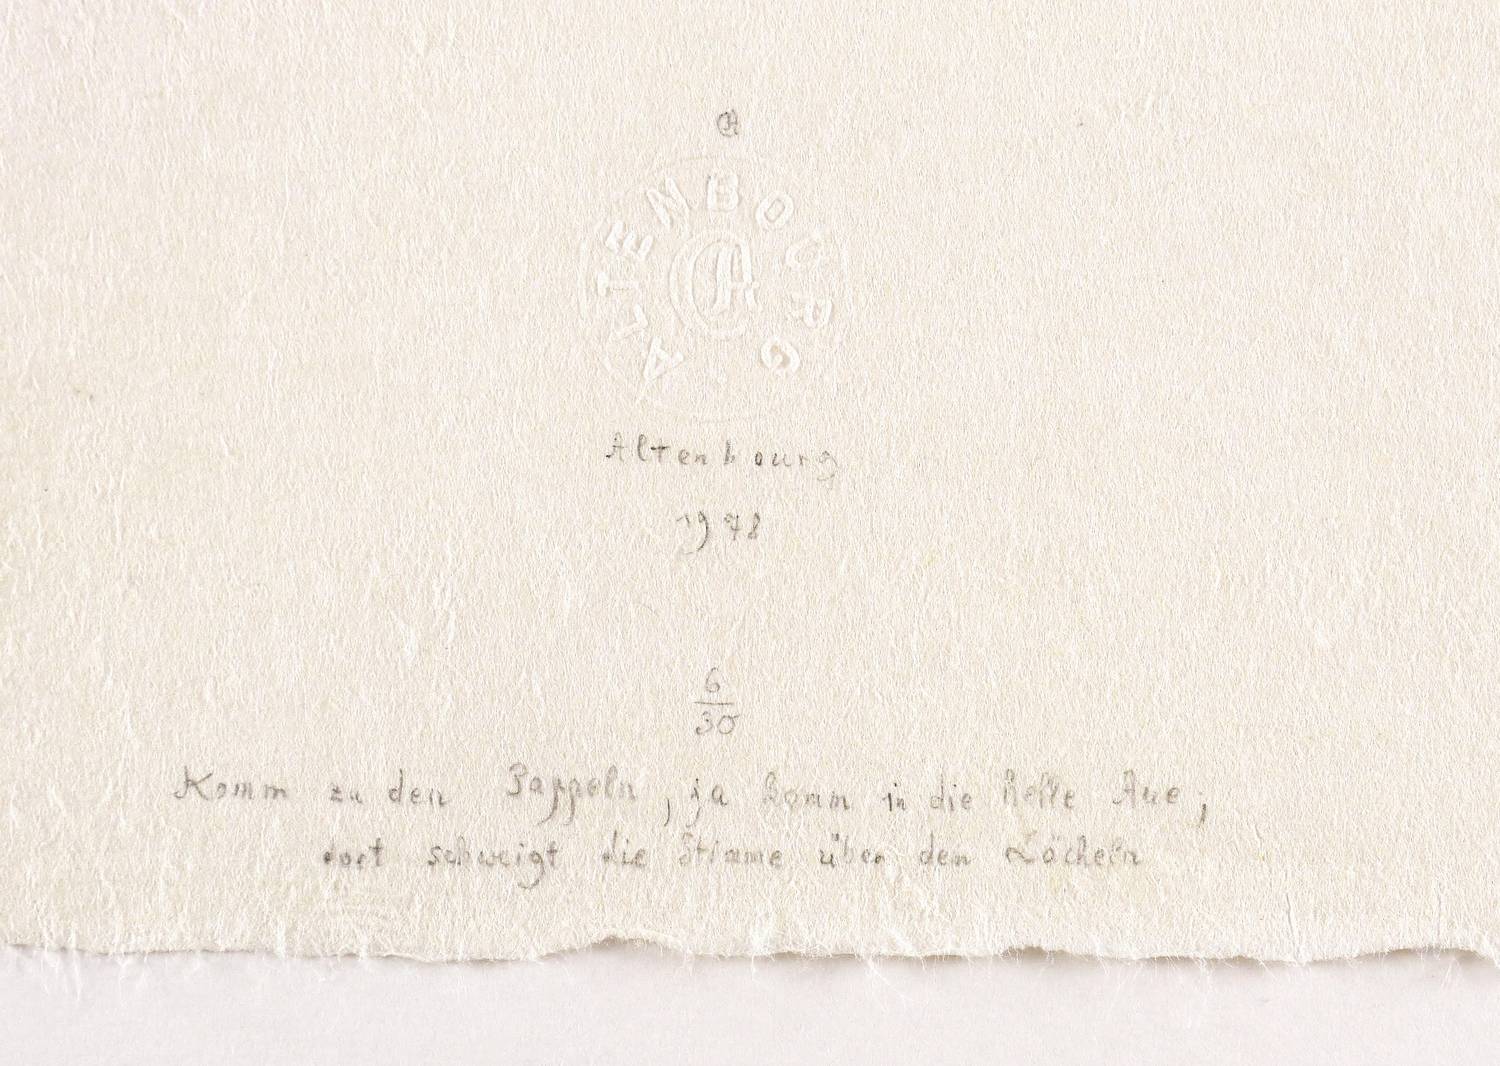 ALTENBOURG
Altenbourg
1978
6
30
Komm zu den Pappeln, ja komm in die helle Aue;
dort schweigt die Stimme über den Löcheln